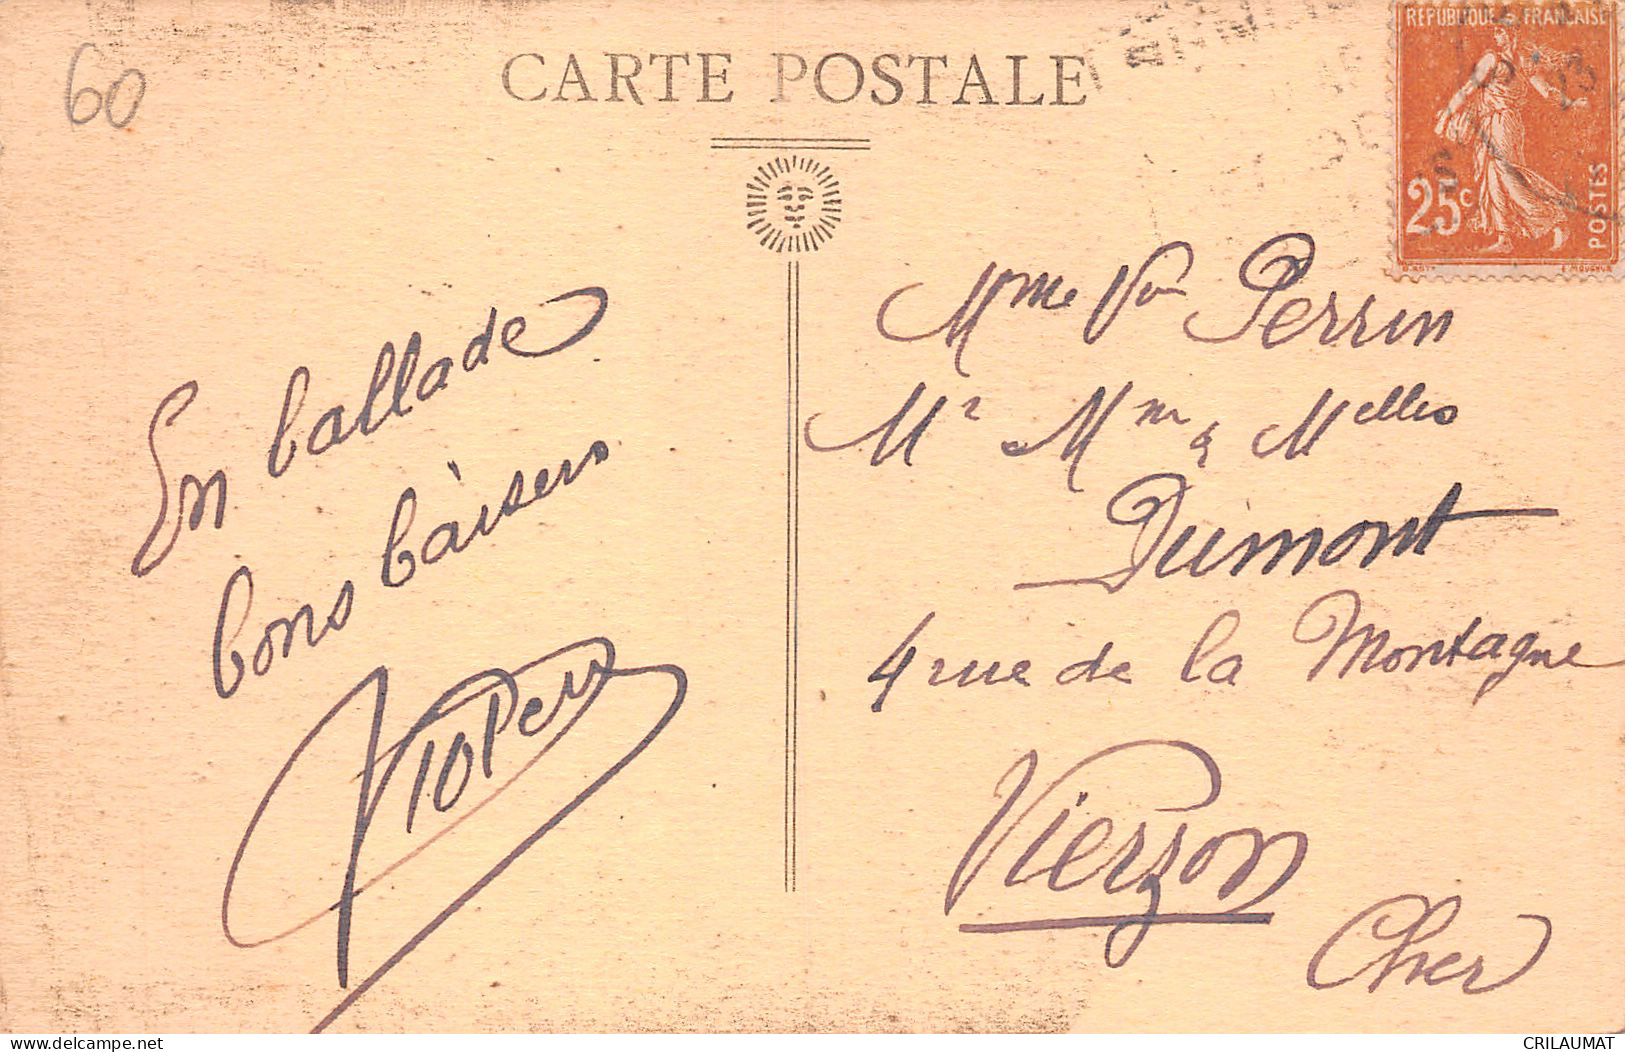 60
CARTE POSTALE
REPUBLIQUE FRANÇAISE
25c
POSTES
En ballade
bons baisers
Mme Vve Perrin
Mr Mm & Melles
Dumont
4 rue de la Montagne
Vierzon
Cher
www.delcampe.net
CRILAUMAT